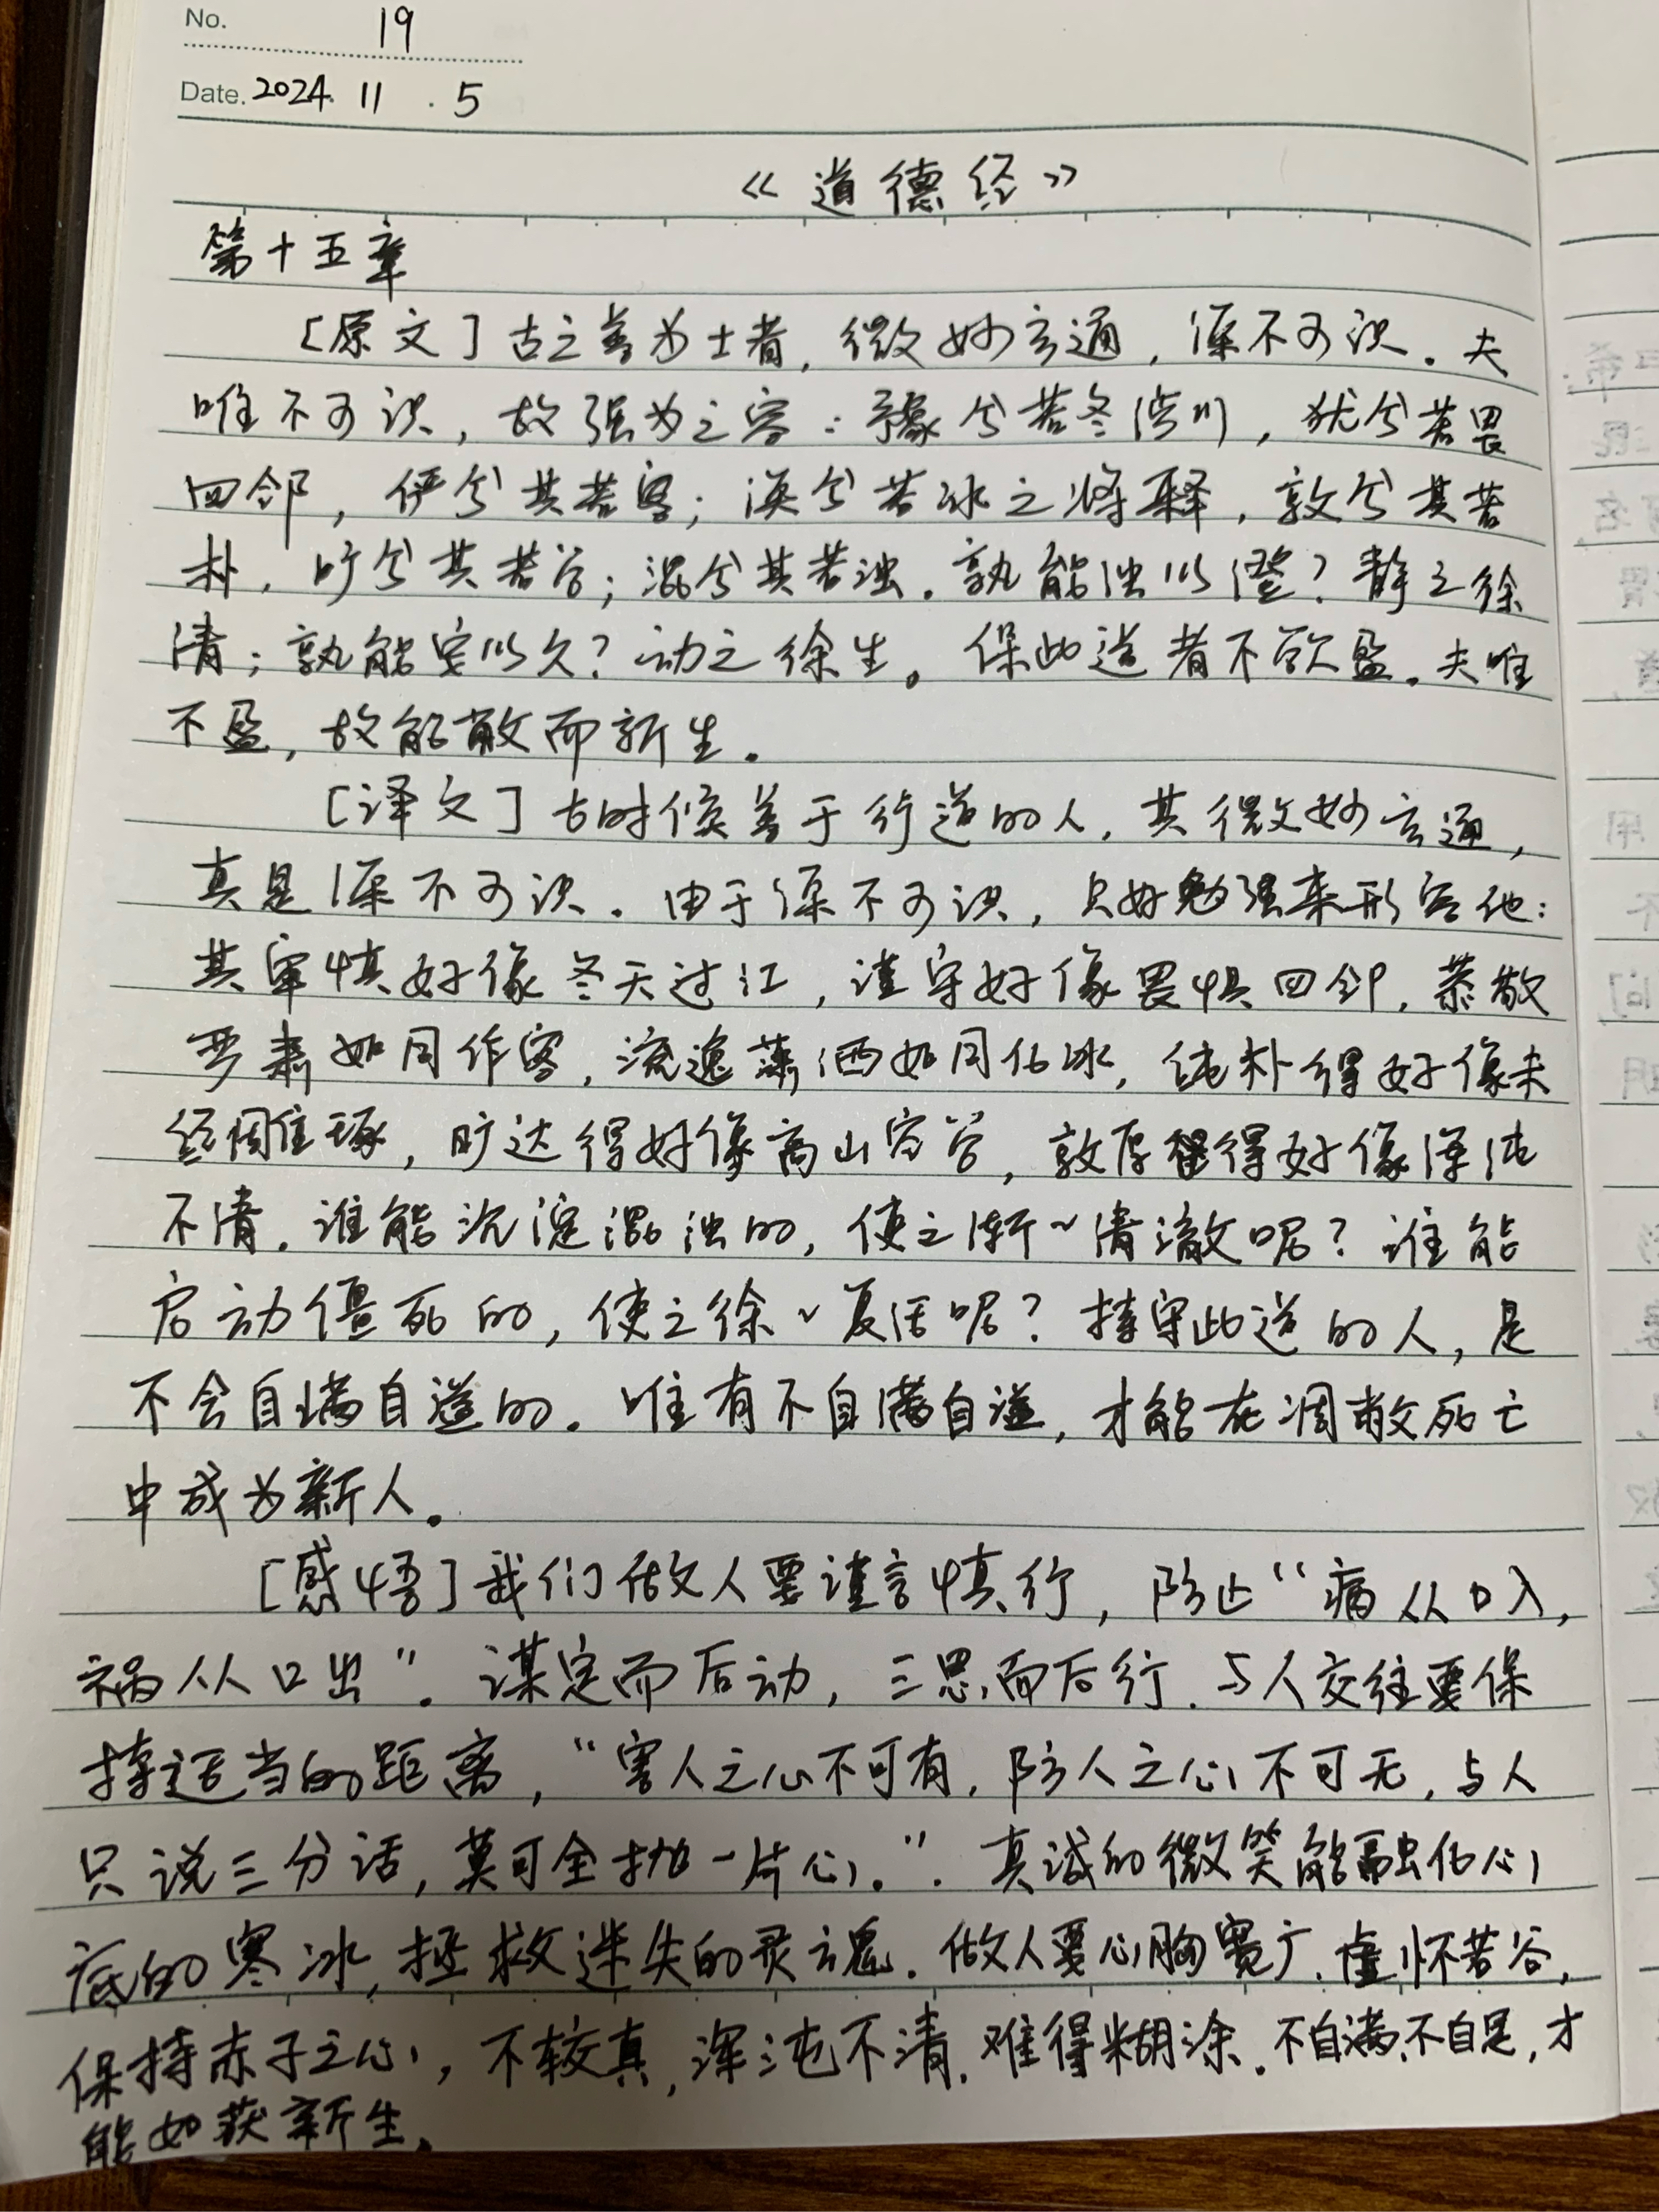 No. 19
Date. 2024. 11 . 5
《道德经》
第十五章
[原文]古之善为士者，微妙玄通，深不可识。夫
唯不可识，故强为之容：豫兮若冬涉川，犹兮若畏
四邻，俨兮其若客；涣兮若冰之将释，敦兮其若
朴，旷兮其若谷；混兮其若浊。孰能浊以澄？静之徐
清；孰能安以久？动之徐生。保此道者不欲盈。夫唯
不盈，故能敝而新生。
[译文]古时候善于行道的人，其微妙玄通，
真是深不可识。由于深不可识，只好勉强来形容他：
其审慎好像冬天过江，谨守好像畏惧四邻，恭敬
严肃如同作客，流逸潇洒如同化冰，纯朴得好像未
经雕琢，旷达得好像高山空谷，敦厚得好像浑沌
不清。谁能沉淀混浊的，使之渐~清澈呢？谁能
启动僵死的，使之徐~复活呢？持守此道的人，是
不会自满自溢的。唯有不自满自溢，才能在凋敝死亡
中成为新人。
[感悟]我们做人要谨言慎行，防止“病从口入，
祸从口出”。谋定而后动，三思而后行。与人交往要保
持适当的距离，“害人之心不可有，防人之心不可无，与人
只说三分话，莫可全抛一片心。”. 真诚的微笑能融化心
底的寒冰，拯救迷失的灵魂。做人要心胸宽广、虚怀若谷，
保持赤子之心，不较真，浑沌不清，难得糊涂。不自满、不自是，才
能如获新生。